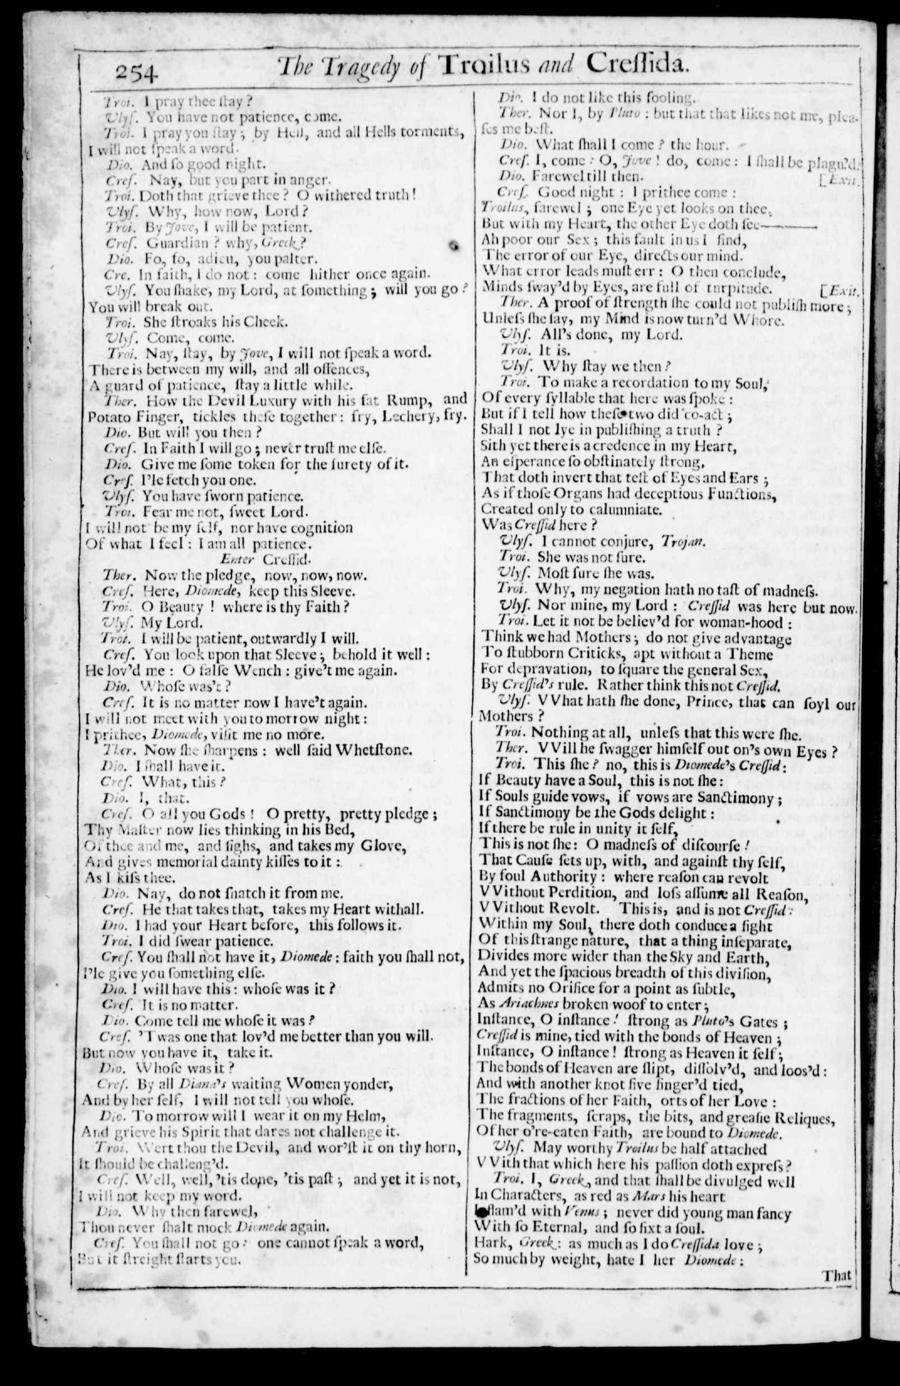 254 The Tragedy of Troilus and Creſſida.
Troi. I pray thee ſtay?
Ulyſ. You have not patience, come.
Troi. I pray you ſtay; by Hell, and all Hells torments,
I will not ſpeak a word.
Dio. And ſo good night.
Creſ. Nay, but you part in anger.
Troi. Doth that grieve thee? O withered truth!
Ulyſ. Why, how now, Lord?
Troi. By Jove, I will be patient.
Creſ. Guardian? why, Greek?
Dio. Fo, fo, adieu, you palter.
Cre. In faith, I do not: come hither once again.
Ulyſ. You ſhake, my Lord, at ſomething; will you go?
You will break out.
Troi. She ſtroaks his Cheek.
Ulyſ. Come, come.
Troi. Nay, ſtay, by Jove, I will not ſpeak a word.
There is between my will, and all offences,
A guard of patience, ſtay a little while.
Ther. How the Devil Luxury with his fat Rump, and
Potato Finger, tickles theſe together: fry, Lechery, fry.
Dio. But will you then?
Creſ. In Faith I will go; never truſt me elſe.
Dio. Give me ſome token for the ſurety of it.
Creſ. I'le fetch you one.
Ulyſ. You have ſworn patience.
Troi. Fear me not, ſweet Lord.
I will not be my ſelf, nor have cognition
Of what I feel: I am all patience.
Enter Creſſid.
Ther. Now the pledge, now, now, now.
Creſ. Here, Diomede, keep this Sleeve.
Troi. O Beauty! where is thy Faith?
Ulyſ. My Lord.
Troi. I will be patient, outwardly I will.
Creſ. You look upon that Sleeve; behold it well:
He lov'd me: O falſe Wench: give't me again.
Dio. Whoſe was't?
Creſ. It is no matter now I have't again.
I will not meet with you to morrow night:
I prithee, Diomede, viſit me no more.
Ther. Now ſhe ſharpens: well ſaid Whetſtone.
Dio. I ſhall have it.
Creſ. What, this?
Dio. I, that.
Creſ. O all you Gods! O pretty, pretty pledge;
Thy Maſter now lies thinking in his Bed,
Of thee and me, and ſighs, and takes my Glove,
And gives memorial dainty kiſſes to it:
As I kiſs thee.
Dio. Nay, do not ſnatch it from me.
Creſ. He that takes that, takes my Heart withall.
Dio. I had your Heart before, this follows it.
Troi. I did ſwear patience.
Creſ. You ſhall not have it, Diomede: faith you ſhall not,
I'le give you ſomething elſe.
Dio. I will have this: whoſe was it?
Creſ. It is no matter.
Dio. Come tell me whoſe it was?
Creſ. 'Twas one that lov'd me better than you will.
But now you have it, take it.
Dio. Whoſe was it?
Creſ. By all Diana's waiting Women yonder,
And by her ſelf, I will not tell you whoſe.
Dio. To morrow will I wear it on my Helm,
And grieve his Spirit that dares not challenge it.
Troi. Wert thou the Devil, and wor'ſt it on thy horn,
It ſhould be challeng'd.
Creſ. Well, well, 'tis done, 'tis paſt; and yet it is not,
I will not keep my word.
Dio. Why then farewel,
Thou never ſhalt mock Diomede again.
Creſ. You ſhall not go: one cannot ſpeak a word,
But it ſtreight ſtarts you.
Dio. I do not like this fooling.
Ther. Nor I, by Pluto: but that that likes not me, plea-
ſes me beſt.
Dio. What ſhall I come? the hour.
Creſ. I, come: O, Jove! do, come: I ſhall be plagu'd.
Dio. Farewel till then. [Exit.
Creſ. Good night: I prithee come:
Troilus, farewel; one Eye yet looks on thee,
But with my Heart, the other Eye doth ſee———
Ah poor our Sex; this fault in us I find,
The error of our Eye, directs our mind.
What error leads muſt err: O then conclude,
Minds ſway'd by Eyes, are full of turpitude. [Exit.
Ther. A proof of ſtrength ſhe could not publiſh more;
Unleſs ſhe ſay, my Mind is now turn'd Whore.
Ulyſ. All's done, my Lord.
Troi. It is.
Ulyſ. Why ſtay we then?
Troi. To make a recordation to my Soul,
Of every ſyllable that here was ſpoke:
But if I tell how theſe two did co-act;
Shall I not lye in publiſhing a truth?
Sith yet there is a credence in my Heart,
An eſperance ſo obſtinately ſtrong,
That doth invert that teſt of Eyes and Ears;
As if thoſe Organs had deceptious Functions,
Created only to calumniate.
Was Creſſid here?
Ulyſ. I cannot conjure, Trojan.
Troi. She was not ſure.
Ulyſ. Moſt ſure ſhe was.
Troi. Why, my negation hath no taſt of madneſs.
Ulyſ. Nor mine, my Lord: Creſſid was here but now.
Troi. Let it not be believ'd for woman-hood:
Think we had Mothers; do not give advantage
To ſtubborn Criticks, apt without a Theme
For depravation, to ſquare the general Sex,
By Creſſid's rule. Rather think this not Creſſid.
Ulyſ. VVhat hath ſhe done, Prince, that can ſoyl our
Mothers?
Troi. Nothing at all, unleſs that this were ſhe.
Ther. VVill he ſwagger himſelf out on's own Eyes?
Troi. This ſhe? no, this is Diomede's Creſſid:
If Beauty have a Soul, this is not ſhe:
If Souls guide vows, if vows are Sanctimony;
If Sanctimony be the Gods delight:
If there be rule in unity it ſelf,
This is not ſhe: O madneſs of diſcourſe!
That Cauſe ſets up, with, and againſt thy ſelf,
By foul Authority: where reaſon can revolt
VVithout Perdition, and loſs aſſume all Reaſon,
VVithout Revolt. This is, and is not Creſſid:
Within my Soul, there doth conduce a fight
Of this ſtrange nature, that a thing inſeparate,
Divides more wider than the Sky and Earth,
And yet the ſpacious breadth of this diviſion,
Admits no Orifice for a point as ſubtle,
As Ariachnes broken woof to enter;
Inſtance, O inſtance! ſtrong as Pluto's Gates;
Creſſid is mine, tied with the bonds of Heaven;
Inſtance, O inſtance! ſtrong as Heaven it ſelf;
The bonds of Heaven are ſlipt, diſſolv'd, and loos'd:
And with another knot five finger'd tied,
The fractions of her Faith, orts of her Love:
The fragments, ſcraps, the bits, and greaſie Reliques,
Of her o're-eaten Faith, are bound to Diomede.
Ulyſ. May worthy Troilus be half attached
VVith that which here his paſſion doth expreſs?
Troi. I, Greek, and that ſhall be divulged well
In Characters, as red as Mars his heart
Inflam'd with Venus; never did young man fancy
With ſo Eternal, and ſo fixt a ſoul.
Hark, Greek: as much as I do Creſſida love;
So much by weight, hate I her Diomede:
That